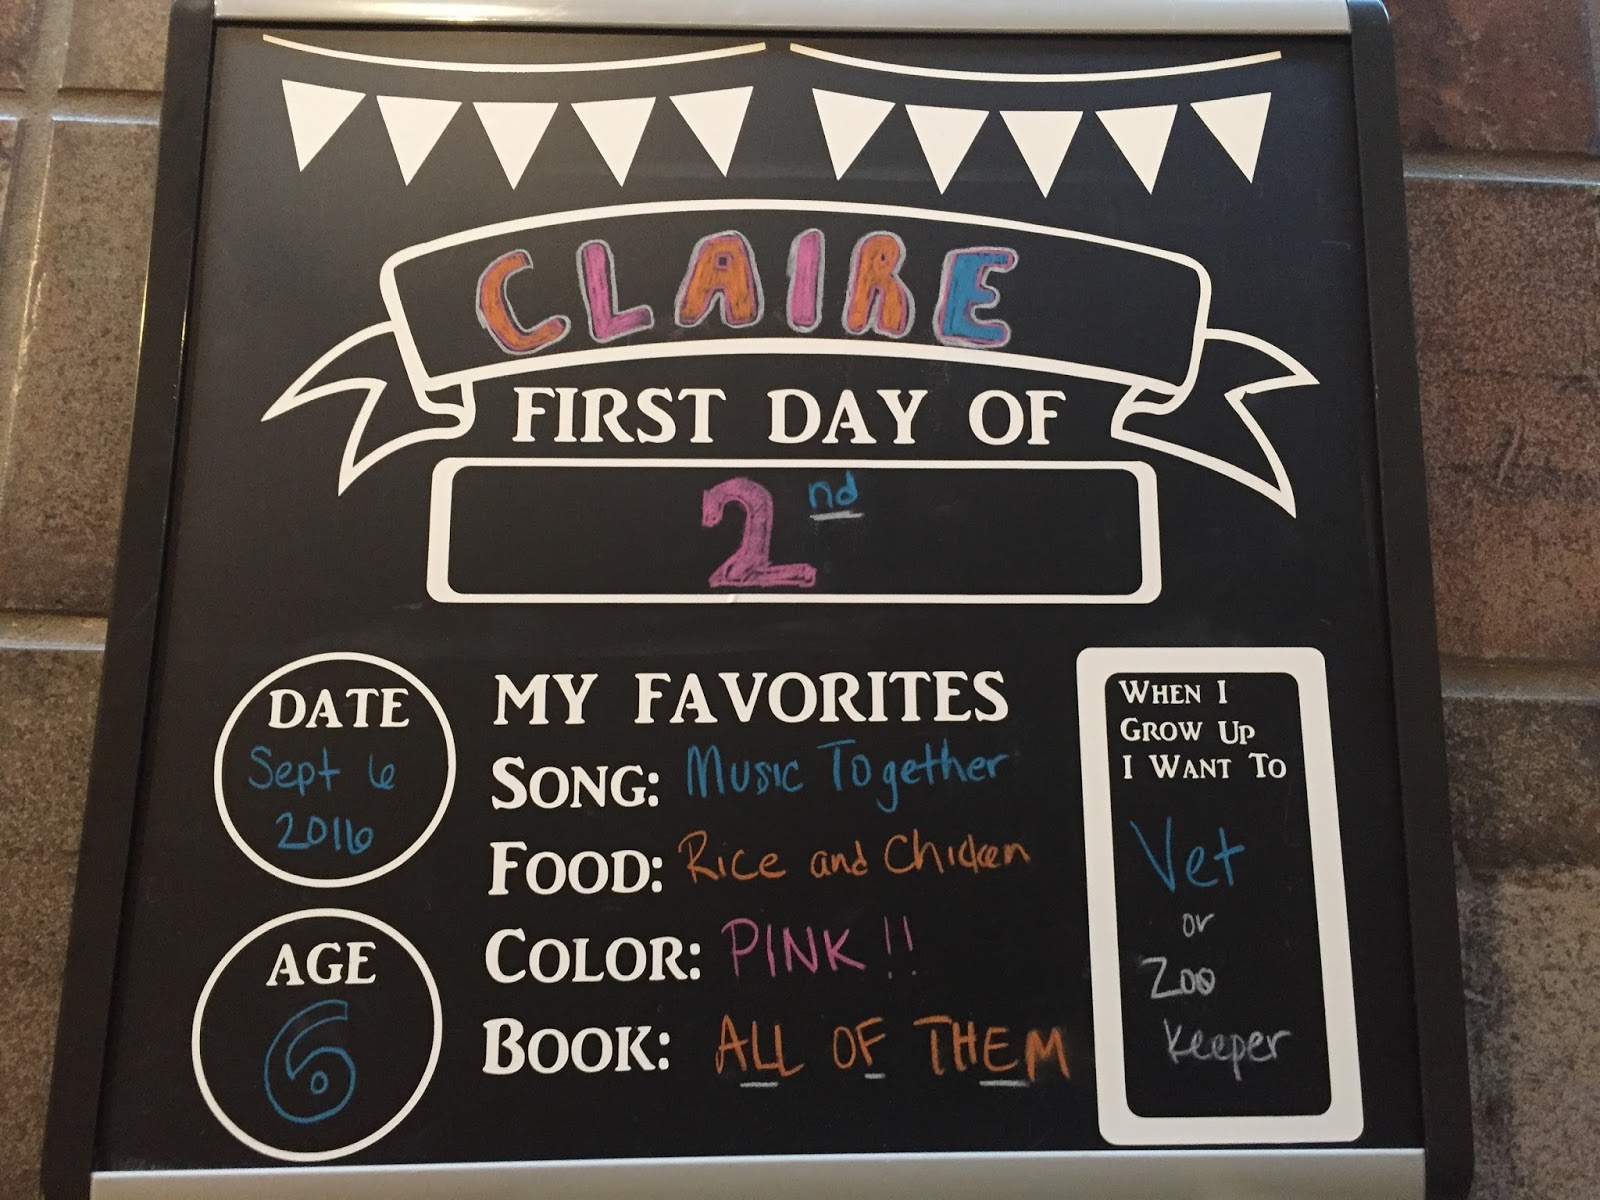 CLAIRE
FIRST DAY OF
2nd
DATE
Sept 6
2016
AGE
6
MY FAVORITES
SONG: Music Together
FOOD: Rice and Chicken
COLOR: PINK!!
BOOK: ALL OF THEM
WHEN I
GROW UP
I WANT TO
Vet
or
Zoo
Keeper